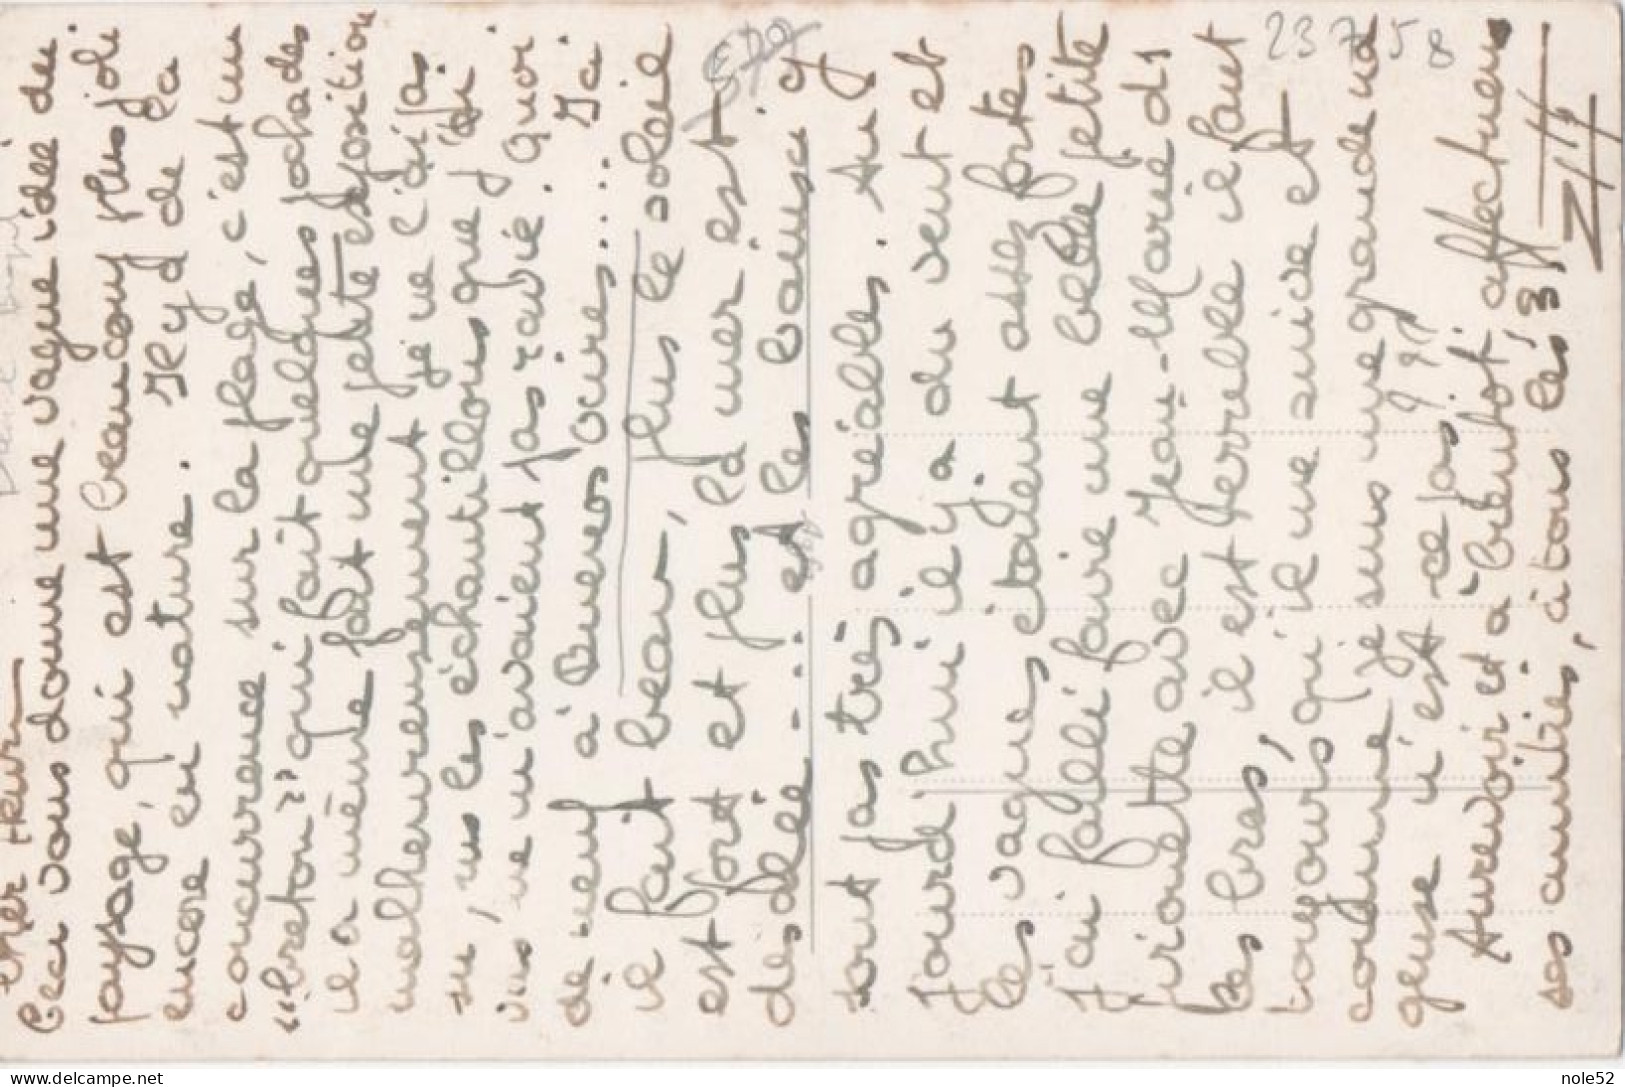 Cher Henri
Ceci vous donne une vague idée du
paysage, qui est beaucoup plus joli
encore en nature. Il y a de la
concurrence sur la plage, c'est un
"breton" qui fait quelques pochades
il a même fait une petite exposition
malheureusement je ne l'ai pas
vu, vu les échantillons que j'ai
vus ne m'avaient pas ravie. Quoi
de neuf à Buenos Aires.... Ici
il fait beau, plus le soleil
est fort et plus la mer est
désolée.... et les bains y
sont pas très agréables. Au
jourd'hui il y a du vent et
les vagues étaient assez fortes
J'ai failli faire une belle petite
pirouette avec Jean-Marie ds
les bras, il est terrible il faut
toujours qu'il me suive et
comme je suis une grande na
geuse n'est-ce pas!
Aurevoir et à bientôt affectueu
ses amitiés, à tous les 3
23 7 58
nole52